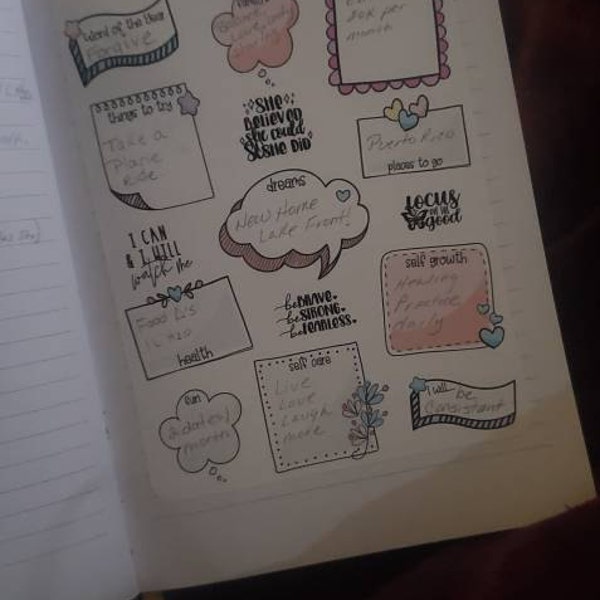 Word of the Year
Forgive
50K per
month
things to try
Take a
Plane
Ride
SHE
BELIEVED
SHE COULD
SO SHE DID
Puerto Rico
places to go
dreams
New Home
Lake Front!
I CAN
& I WILL
watch me
FOCUS
ON THE
good
self growth
Healing
Practice
daily
be BRAVE.
be STRONG.
be FEARLESS.
Food
health
self care
Live
Love
Laugh
more
fun
2 dates/
month
I will
be
Consistant